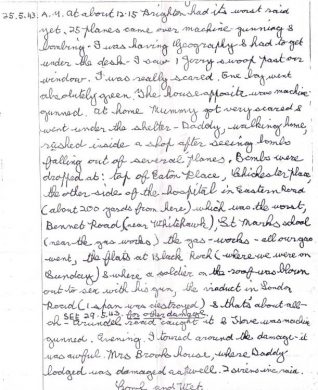 25.5.43. A.M. At about 12.15 Brighton had its worst raid
yet. 25 planes came over machine-gunning &
bombing. I was having Geography & had to get
under the desk. I saw 1 Jerry swoop past our
window. I was really scared. One boy went
absolutely green. The house opposite was machine
gunned. At home Mummy got very scared &
went under the shelter - Daddy, walking home,
rushed inside a shop after seeing bombs
falling out of several planes. Bombs were
dropped at: top of Eaton Place, Chichester place
the other side of the hospital in Eastern Road
(about 200 yards from here) which was the worst,
Bennet Road (near Whitehawk), St Marks school
(near the gas works) the gas-works - all our gas
went, the flats at Black Rock (where we were on
Sunday) & where a soldier on the roof was blown
out to sea with his gun, the viaduct in London
Road (1 span was destroyed) & that's about all-
SEE 29.5.43. for other damage.
oh - Arundel road caught it & Hove was machine
gunned. Evening. I toured around the damage - it
was awful. Mrs Brooks house, where Daddy
lodged was damaged as well. 2 sirens inc. raid.
and Wet.